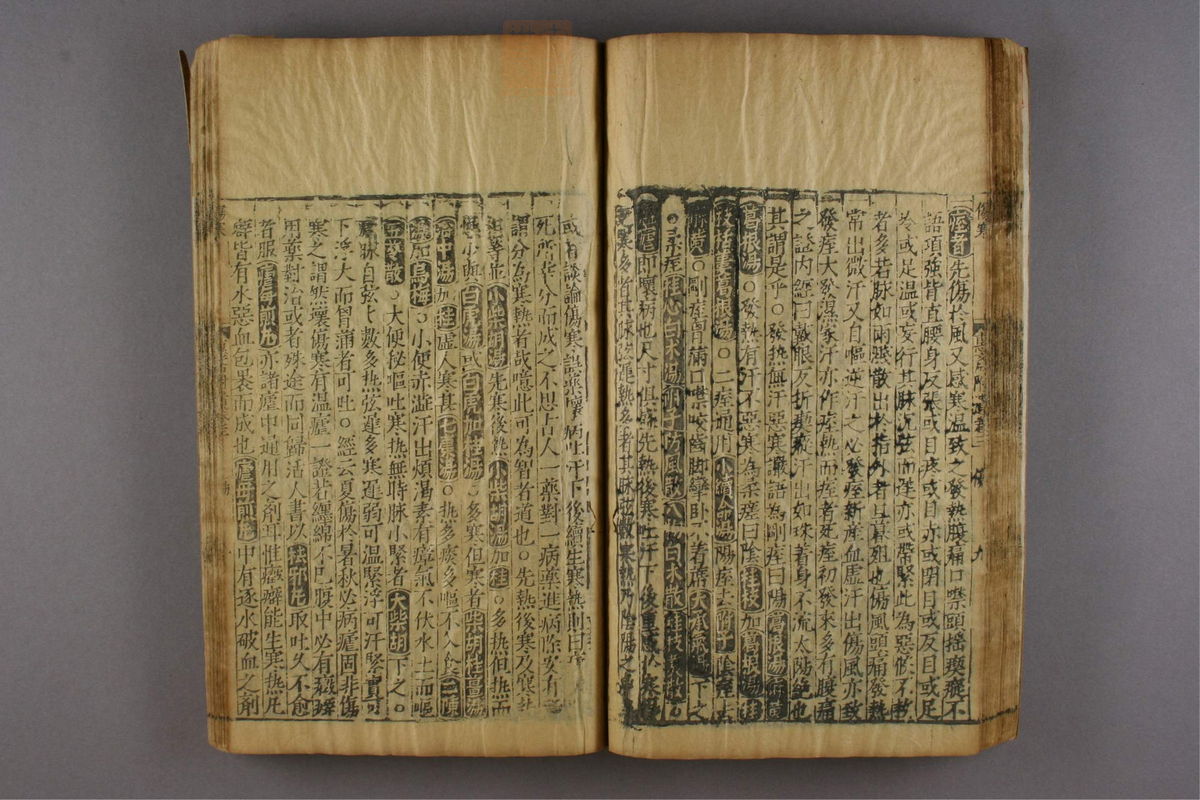 痓者先傷於風又感寒温致之發熱腹痛口噤頭摇瘈瘲不
語項強背直腰身反張或目疼或目赤或閉目或反目或足
冷或足温或妄行其脉沉弦而遅亦或帶緊此為惡候不軟
者多若脉如雨濺散出於指外者旦暮殂也傷風頭痛發熱
常出微汗又自嘔逆汗之必發痓新產血虚汗出傷風亦致
發痓大發濕家汗亦作痓熱而痓者死痓初發來多有腹痛
之證内經曰戴眼反折瘈瘲汗出如珠着身不流太陽絶也
其謂是乎○發熱無汗惡寒讝語為剛痓曰陽葛根湯麻黄
葛根湯○發熱有汗不惡寒為柔痓曰陰桂枝加葛根湯桂
枝栝蔞葛根湯○二痓通用小續命湯陽痓去附子陰痓去
麻黄○剛痓胷滿口噤咬齒脚攣卧不着席大承氣湯下之
○柔痓桂心白术湯附子防風散八物白术散桂枝
瘧即壞病也尺寸俱盛先熱後寒吐汗下後重感於寒
寒多者其脉 熱多者其脉弦數寒熱乃陰陽之
或有談論傷寒誤藥壞病吐汗下後續生寒熱則曰
死所幸 分而成之不思古人一藥對一病藥進病除安有
謂分為寒熱者哉噫此可為智者道也○先熱後寒及寒熱
相等抵小柴胡湯先寒後熱小柴胡湯加桂○多熱但熱而
小與白虎湯或白虎加桂湯○多寒但寒者柴胡桂薑湯
理中湯加桂虚人寒甚七棗湯○熱多痰多嘔不入食二陳
湯加烏梅○小便赤澁汗出煩渴素有瘴氣不伏水土而嘔
五苓散○大便秘嘔吐寒熱無時脉小緊者大柴胡下之○
瘧脉自弦弦數多熱弦遲多寒遲弱可温緊浮可汗緊實可
下浮大而胷滿者可吐○經云夏傷於暑秋必病瘧固非傷
寒之謂然壞傷寒有温瘧一證若纒綿不已腹中必有癥癖
用藥對治或者殊途而同歸活人書以祛邪圪取吐久不愈
者服瘧母煎圪亦諸瘧中通用之劑耳惟癥癖能生寒熱凡
癖皆有水惡血包裹而成也瘧母煎圪中有逐水破血之劑